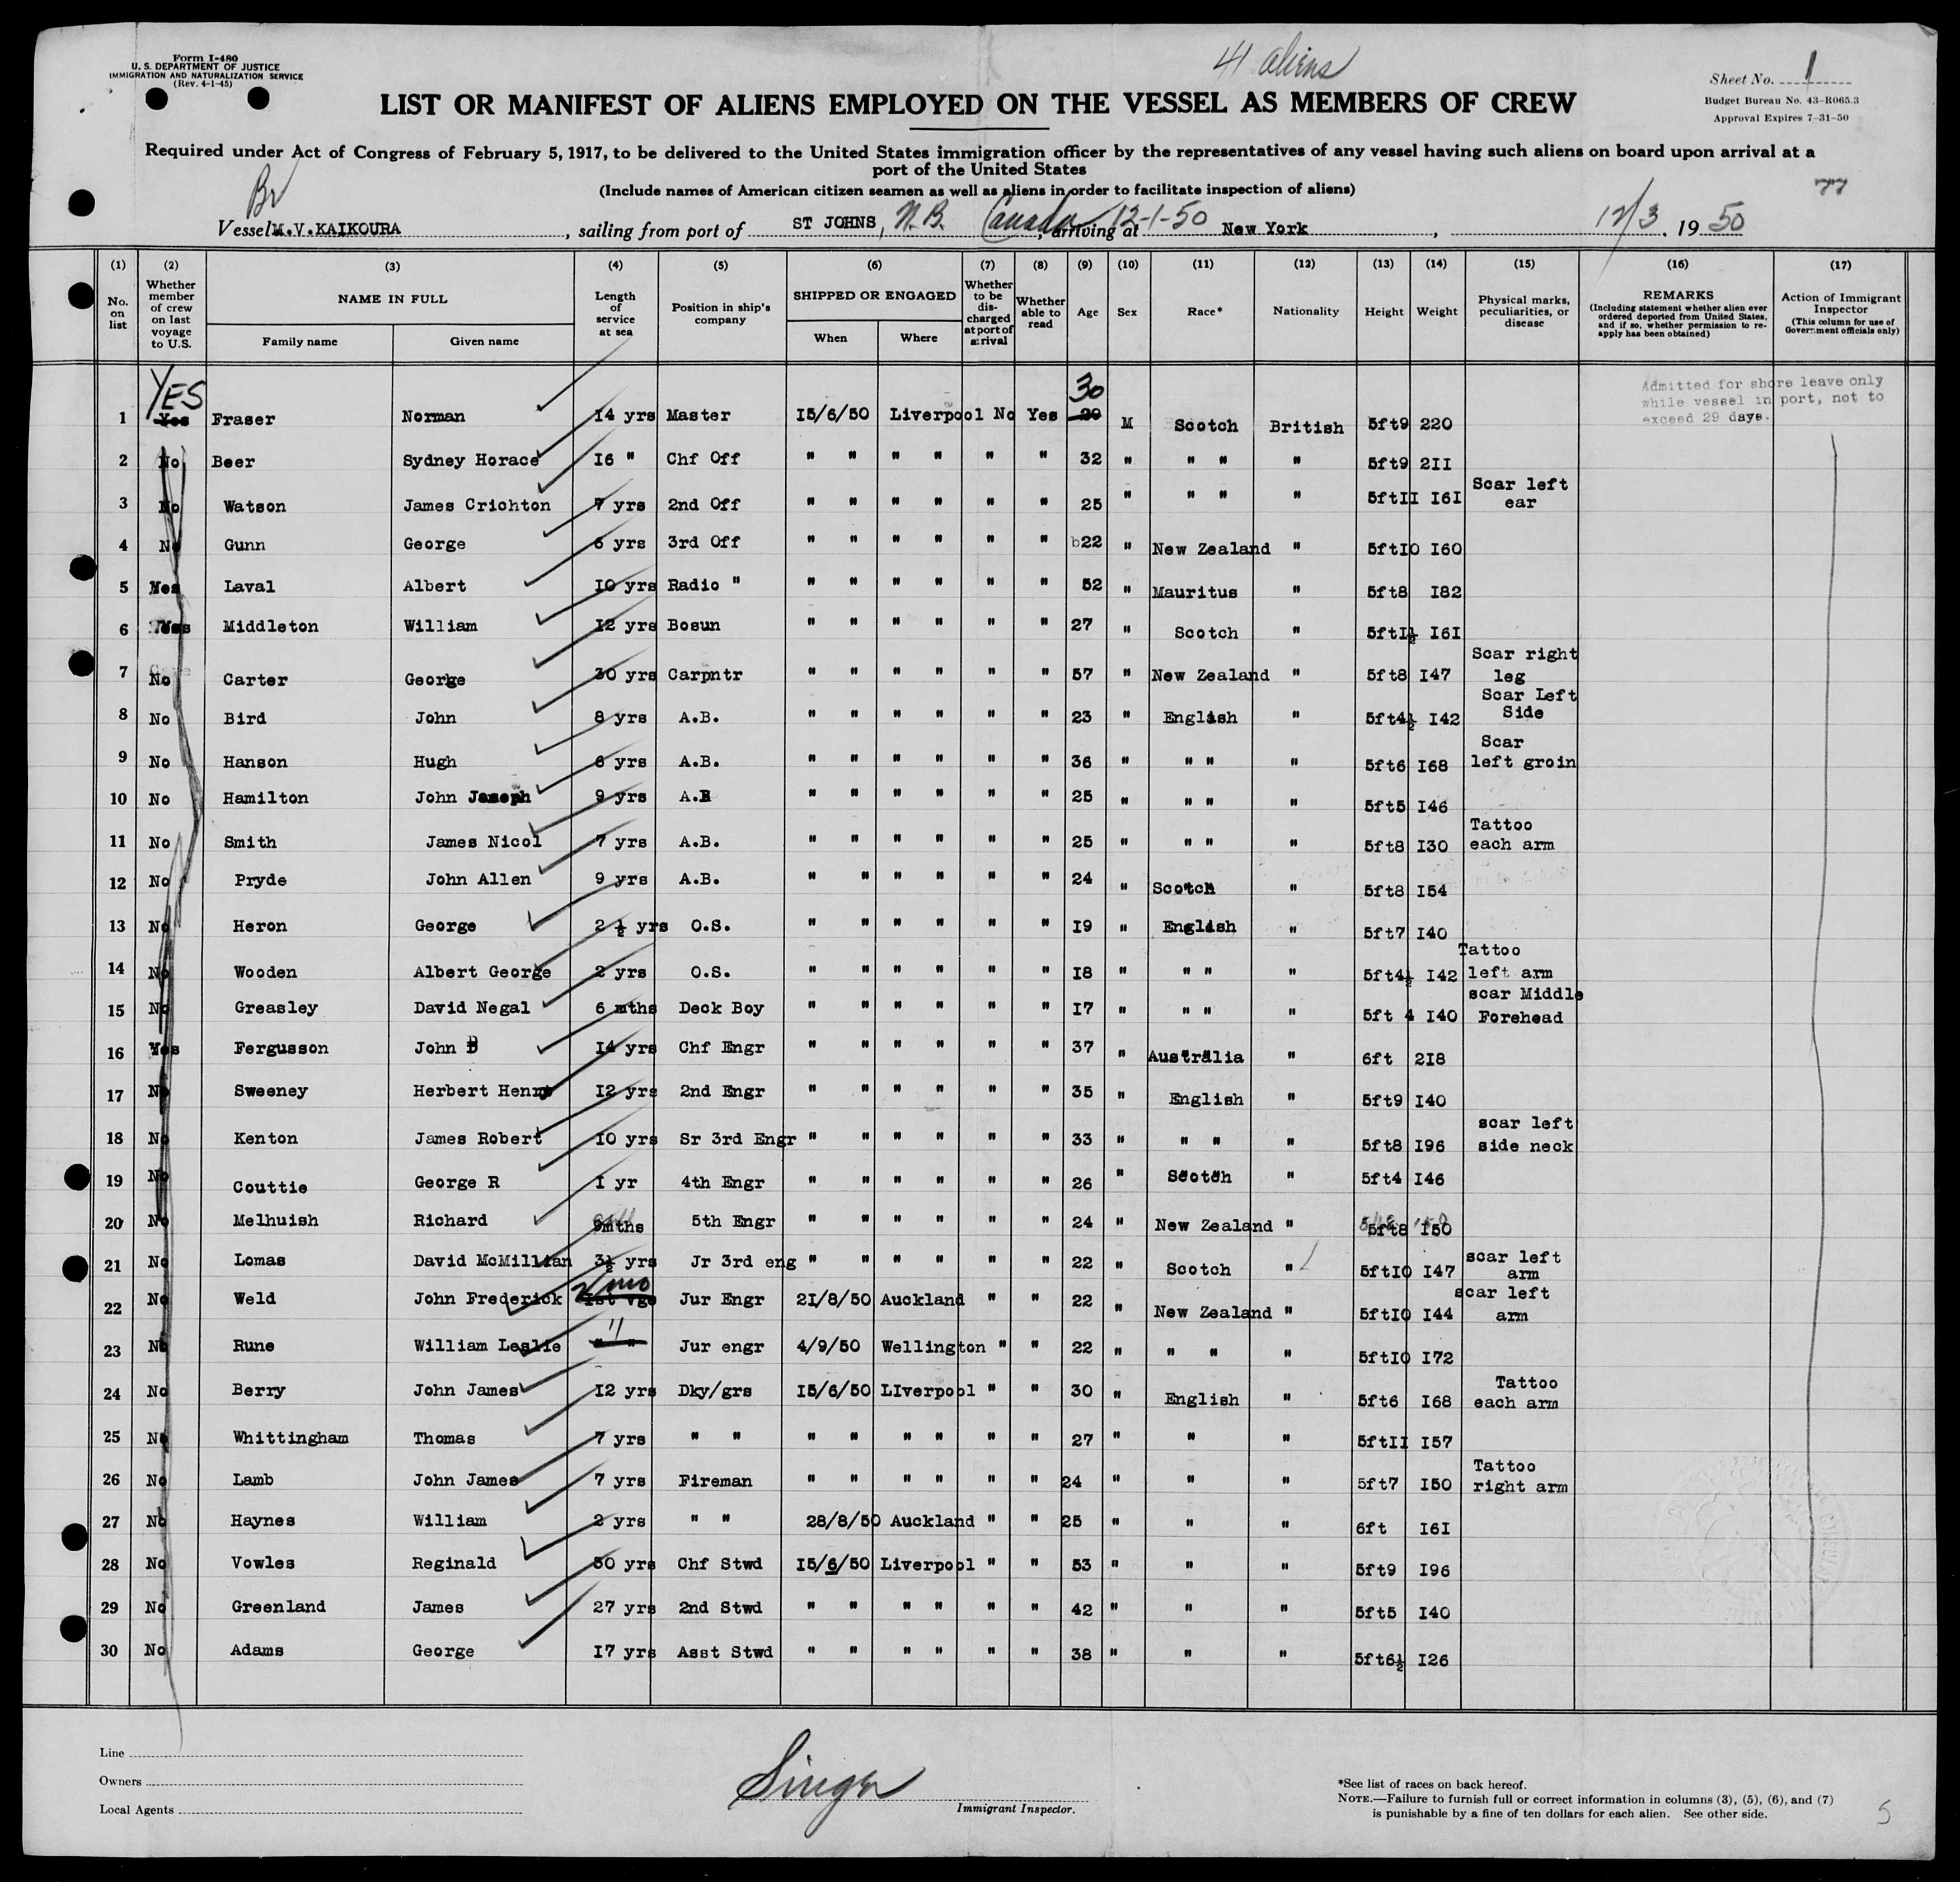 Form I-480
U. S. DEPARTMENT OF JUSTICE
IMMIGRATION AND NATURALIZATION SERVICE
(Rev. 4-1-45)
41 aliens
Sheet No. 1
Budget Bureau No. 43-R065.3
Approval Expires 7-31-50
LIST OR MANIFEST OF ALIENS EMPLOYED ON THE VESSEL AS MEMBERS OF CREW
Required under Act of Congress of February 5, 1917, to be delivered to the United States immigration officer by the representatives of any vessel having such aliens on board upon arrival at a
port of the United States
(Include names of American citizen seamen as well as aliens in order to facilitate inspection of aliens)
Br
Vessel M.V.KAIKOURA, sailing from port of ST JOHNS, N.B. Canada 12-1-50, arriving at New York, 12/3, 1950
(1) (2) (3) (4) (5) (6) (7) (8) (9) (10) (11) (12) (13) (14) (15) (16) (17)
No. on list
Whether member of crew on last voyage to U.S.
NAME IN FULL
Family name Given name
Length of service at sea
Position in ship's company
SHIPPED OR ENGAGED
When Where
Whether to be discharged at port of arrival
Whether able to read
Age
Sex
Race*
Nationality
Height
Weight
Physical marks, peculiarities, or disease
REMARKS
(Including statement whether alien ever ordered deported from United States, and if so, whether permission to re-apply has been obtained)
Action of Immigrant Inspector
(This column for use of Government officials only)
Admitted for shore leave only
while vessel in port, not to
exceed 29 days.
YES 30
1 Yes Fraser Norman 14 yrs Master 15/6/50 Liverpool No Yes 29 M Scotch British 5ft9 220
2 No Beer Sydney Horace 16 " Chf Off " " " " " " 32 " " " " 5ft9 2II
3 No Watson James Crichton 7 yrs 2nd Off " " " " " " 25 " " " " 5ftII I6I Scar left ear
4 No Gunn George 6 yrs 3rd Off " " " " " " 22 " New Zealand " 5ftI0 I60
5 Yes Laval Albert I0 yrs Radio " " " " " " " 52 " Mauritus " 5ft8 I82
6 Yes Middleton William I2 yrs Bosun " " " " " " 27 " Scotch " 5ftI½ I6I
7 No Carter George 30 yrs Carpntr " " " " " " 57 " New Zealand " 5ft8 I47 Scar right leg
8 No Bird John 8 yrs A.B. " " " " " " 23 " English " 5ft4½ I42 Scar Left Side
9 No Hanson Hugh 6 yrs A.B. " " " " " " 36 " " " " 5ft6 I68 Scar left groin
10 No Hamilton John Joseph 9 yrs A.B " " " " " " 25 " " " " 5ft5 I46
11 No Smith James Nicol 7 yrs A.B. " " " " " " 25 " " " " 5ft8 I30 Tattoo each arm
12 No Pryde John Allen 9 yrs A.B. " " " " " " 24 " Scotch " 5ft8 I54
13 No Heron George 2 ½ yrs O.S. " " " " " " I9 " English " 5ft7 I40
14 No Wooden Albert George 2 yrs O.S. " " " " " " I8 " " " " 5ft4½ I42 Tattoo left arm
15 No Greasley David Negal 6 mths Deck Boy " " " " " " I7 " " " " 5ft 4 I40 scar Middle Forehead
16 Yes Fergusson John B I4 yrs Chf Engr " " " " " " 37 " Australia " 6ft 2I8
17 No Sweeney Herbert Henry I2 yrs 2nd Engr " " " " " " 35 " English " 5ft9 I40
18 No Kenton James Robert I0 yrs Sr 3rd Engr " " " " " " 33 " " " " 5ft8 I96 scar left side neck
19 No Couttie George R I yr 4th Engr " " " " " " 26 " Scotch " 5ft4 I46
20 No Melhuish Richard 9mths 5th Engr " " " " " " 24 " New Zealand " 5ft8 I50
21 No Lomas David McMillian 3½ yrs Jr 3rd eng " " " " " " 22 " Scotch " 5ftI0 I47 scar left arm
2/mo
22 No Weld John Frederick Ist vge Jur Engr 2I/8/50 Auckland " " 22 " New Zealand " 5ftI0 I44 scar left arm
23 No Rune William Leslie " " Jur engr 4/9/50 Wellington " " 22 " " " " 5ftI0 I72
24 No Berry John James I2 yrs Dky/grs I5/6/50 LIverpool " " 30 " English " 5ft6 I68 Tattoo each arm
25 No Whittingham Thomas 7 yrs " " " " " " " " 27 " " " 5ftII I57
26 No Lamb John James 7 yrs Fireman " " " " " " 24 " " " 5ft7 I50 Tattoo right arm
27 No Haynes William 2 yrs " " 28/8/50 Auckland " " 25 " " " 6ft I6I
28 No Vowles Reginald 30 yrs Chf Stwd I5/6/50 Liverpool " " 53 " " " 5ft9 I96
29 No Greenland James 27 yrs 2nd Stwd " " " " " " 42 " " " 5ft5 I40
30 No Adams George I7 yrs Asst Stwd " " " " " " 38 " " " 5ft6½ I26
Line
Owners
Local Agents
Singer
Immigrant Inspector.
*See list of races on back hereof.
NOTE.—Failure to furnish full or correct information in columns (3), (5), (6), and (7)
is punishable by a fine of ten dollars for each alien. See other side.
5